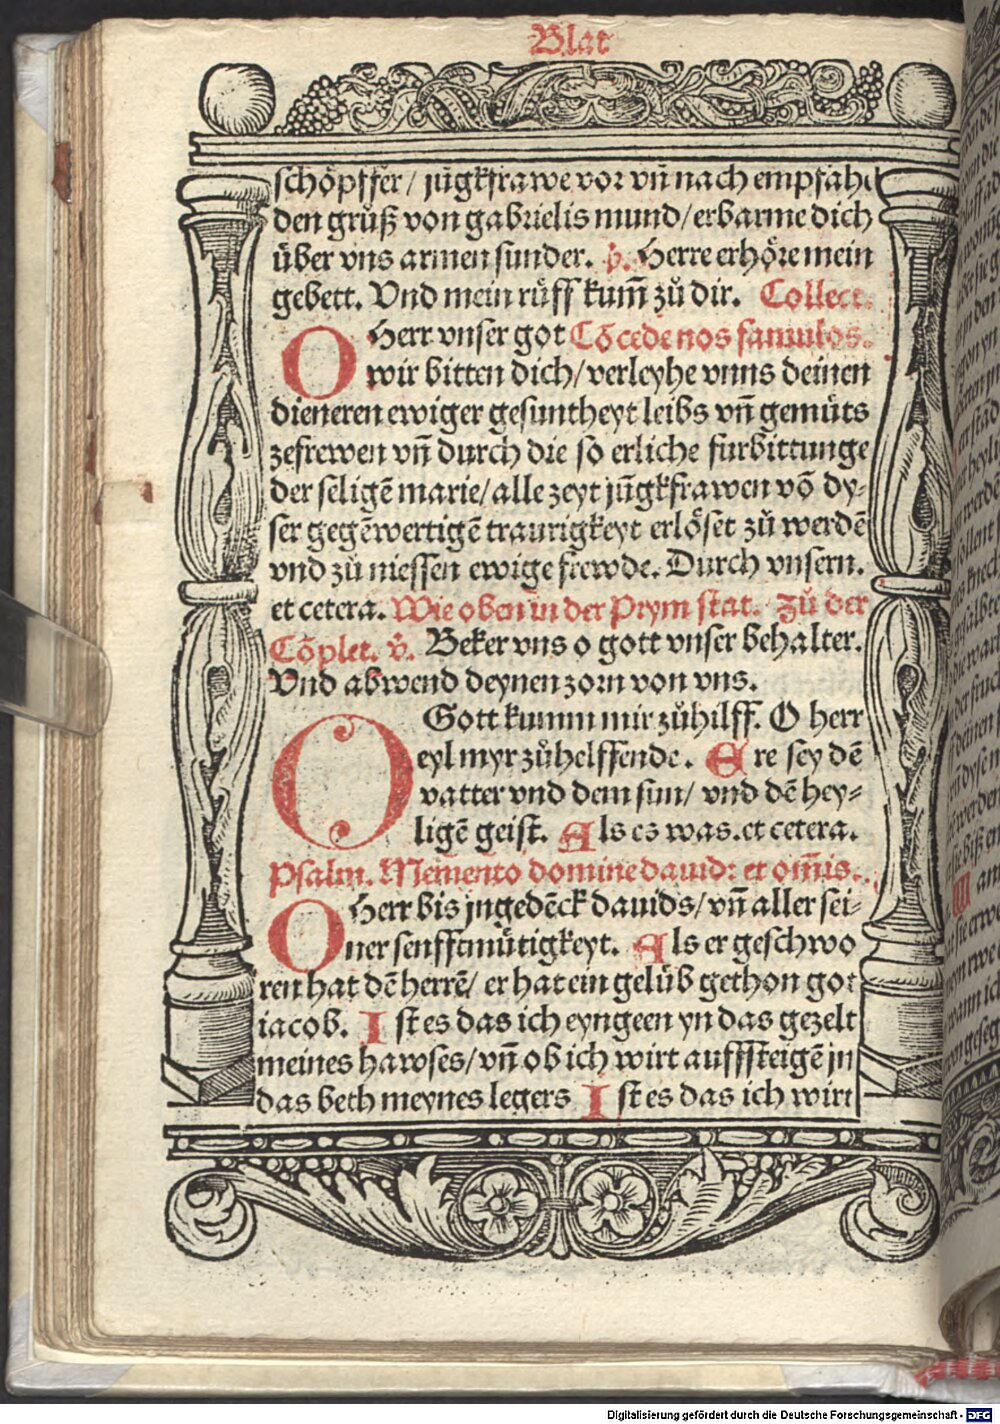 Blat
schöpffer / jūgkfrawe vor vñ nach empfahē
den grůß von gabrielis mund / erbarme dich
über vns armen sunder. v̄. Herre erhöre mein
gebett. Vnd mein rüff kum̄ zů dir. Collect.
O Herr vnser got Cōcede nos famulos.
wir bitten dich / verleyhe vnns deinen
dieneren ewiger gesuntheyt leibs vñ gemüts
zefrewen vñ durch die so erliche furbittunge
der seligē marie / alle zeyt jūgkfrawen vō dy-
ser gegēwertigē traurigkeyt erlöset zů werdē
vnd zů niessen ewige frewde. Durch vnsern.
et cetera. Wie oben in der Prym stat. Zů der
Cōplet. v̄. Beker vns o gott vnser behalter.
Vnd abwend deynen zorn von vns.
O Gott kumm mir zůhilff. O herr
eyl myr zůhelffende. Ere sey dē
vatter vnd dem sun / vnd dē hey-
ligē geist. Als es was. et cetera.
Psalm. Memento domine dauid: et om̄is.
O Herr bis jngedēck dauids / vñ aller sei-
ner senfftmütigkeyt. Als er geschwo
ren hat dē herrē / er hat ein gelüb gethon got
iacob. Ist es das ich eyngeen yn das gezelt
meines hawses / vñ ob ich wirt auffsteigē jn
das beth meynes legers Ist es das ich wirt
Digitalisierung gefördert durch die Deutsche Forschungsgemeinschaft - DFG